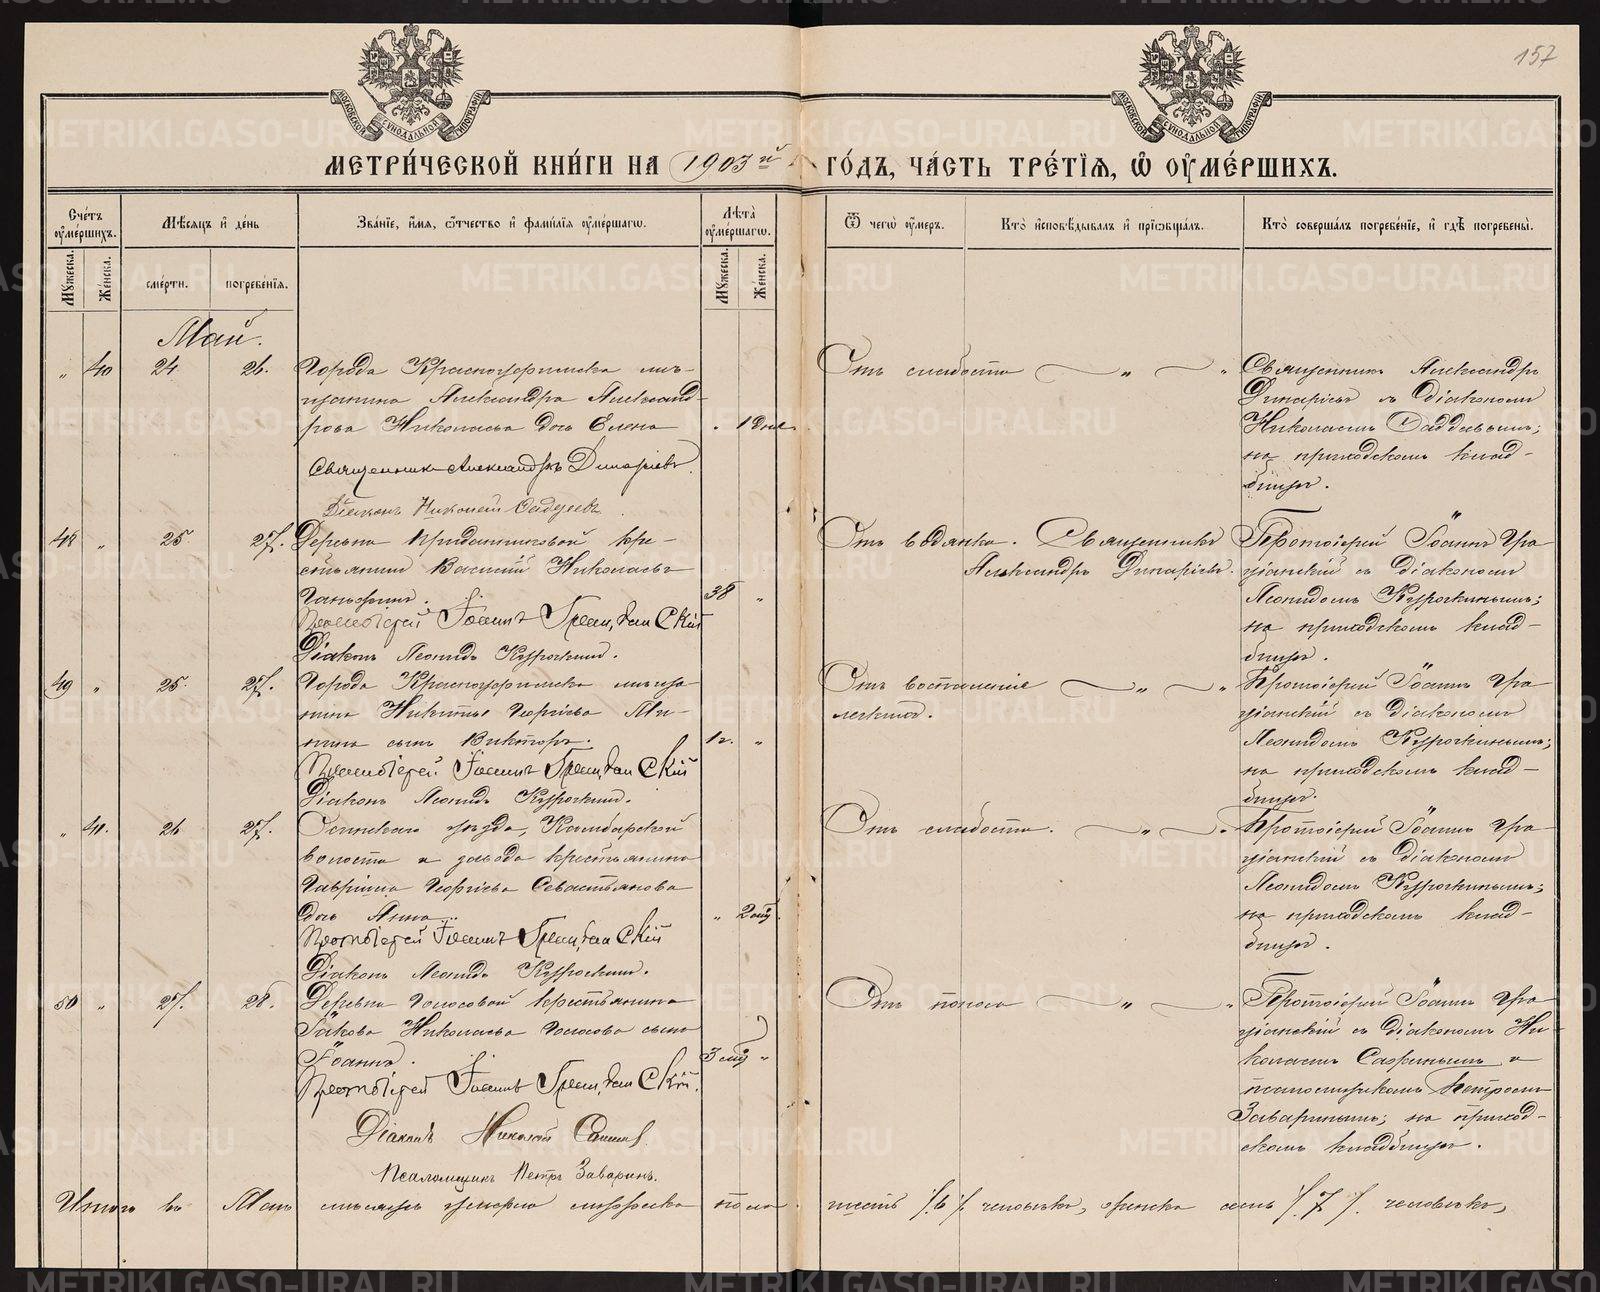 157
МОСКОВСКОЙ СѴНОДАЛЬНОЙ ТИПОГРАФІИ
МОСКОВСКОЙ СѴНОДАЛЬНОЙ ТИПОГРАФІИ
МЕТРИ́ЧЕСКОЙ КНИ́ГИ НА 1903й ГО́ДЪ, ЧА́СТЬ ТРЕ́ТІѦ, Ѽ ОУ҆МЕ́РШИХЪ.
Сче́тъ оу҆ме́ршихъ.
Мѣ́сѧцъ и҆ де́нь
Зва́нїе, и҆́мѧ, ѻ҆́тчество и҆ фами́лїѧ оу҆ме́ршагѡ.
Лѣ́та оу҆ме́ршагѡ.
Ѿ чегѡ̀ оу҆́меръ.
Кто̀ и҆сповѣ́дывалъ и҆ прїѡбща́лъ.
Кто̀ соверша́лъ погребе́нїе, и҆ гдѣ̀ погребены̀.
Мꙋ́жеска.
Же́нска.
сме́рти.
погребе́нїѧ.
Мꙋ́жеска.
Же́нска.
Май.
„ 40 24 26. Города Красноуфимска мѣ-
щанина Александра Александ-
рова Николаева дочь Елена „ 1 дня
Священникъ Александръ Динаріевъ.
Діаконъ Николай Саддуевъ.
Отъ слабости „ „
Священникъ Александръ
Динаріевъ съ діакономъ
Николаемъ
на приходскомъ клад-
бищѣ.
48 „ 25 27. Деревни кре-
стьянинъ Василій Николаевъ
38 „
Протоіерей Іоаннъ Граціанскій
Діаконъ Леонидъ Курочкинъ.
Отъ водянки. Священникъ
Александръ Динаріевъ.
Протоіерей Іоаннъ Гра
ціанскій съ діакономъ
Леонидомъ Курочкинымъ;
на приходскомъ клад-
бищѣ.
49 „ 25 27. Города Красноуфимска мѣща
нина Никиты Георгіева Ми-
нина сынъ Викторъ. 1 г. „
Протоіерей Іоаннъ Граціанскій
Діаконъ Леонидъ Курочкинъ.
Отъ воспаленіе „ „
легкихъ.
Протоіерей Іоаннъ Гра
ціанскій съ діакономъ
Леонидомъ Курочкинымъ;
на приходскомъ клад-
бищѣ.
„ 41. 26 27. Осинскаго уѣзда, Камбарской
волости и завода крестьянина
Гавріила Георгіева Севастьянова
дочь Анна. „ 2 мѣ
Протоіерей Іоаннъ Граціанскій
Діаконъ Леонидъ Курочкинъ.
Отъ слабости. „ „
Протоіерей Іоаннъ Гра
ціанскій съ діакономъ
Леонидомъ Курочкинымъ;
на приходскомъ клад-
бищѣ.
50 „ 27. 28. Деревни Голосовой крестьянина
Іакова Николаева Голосова сынъ
Іоаннъ. 3 мѣ „
Протоіерей Іоаннъ Граціанскій.
Діаконъ Николай
Псаломщикъ Петръ Заваринъ.
Отъ поноса „ „
Протоіерей Іоаннъ Гра
ціанскій съ діакономъ Ни-
колаемъ и
псаломщикомъ Петромъ
Заваринымъ; на приход-
скомъ кладбищѣ.
Итого въ Маѣ мѣсяцѣ умерло мужеска пола шесть /.6/. человѣкъ, женска семь /.7/. человѣкъ,
METRIKI.GASO-URAL.RU